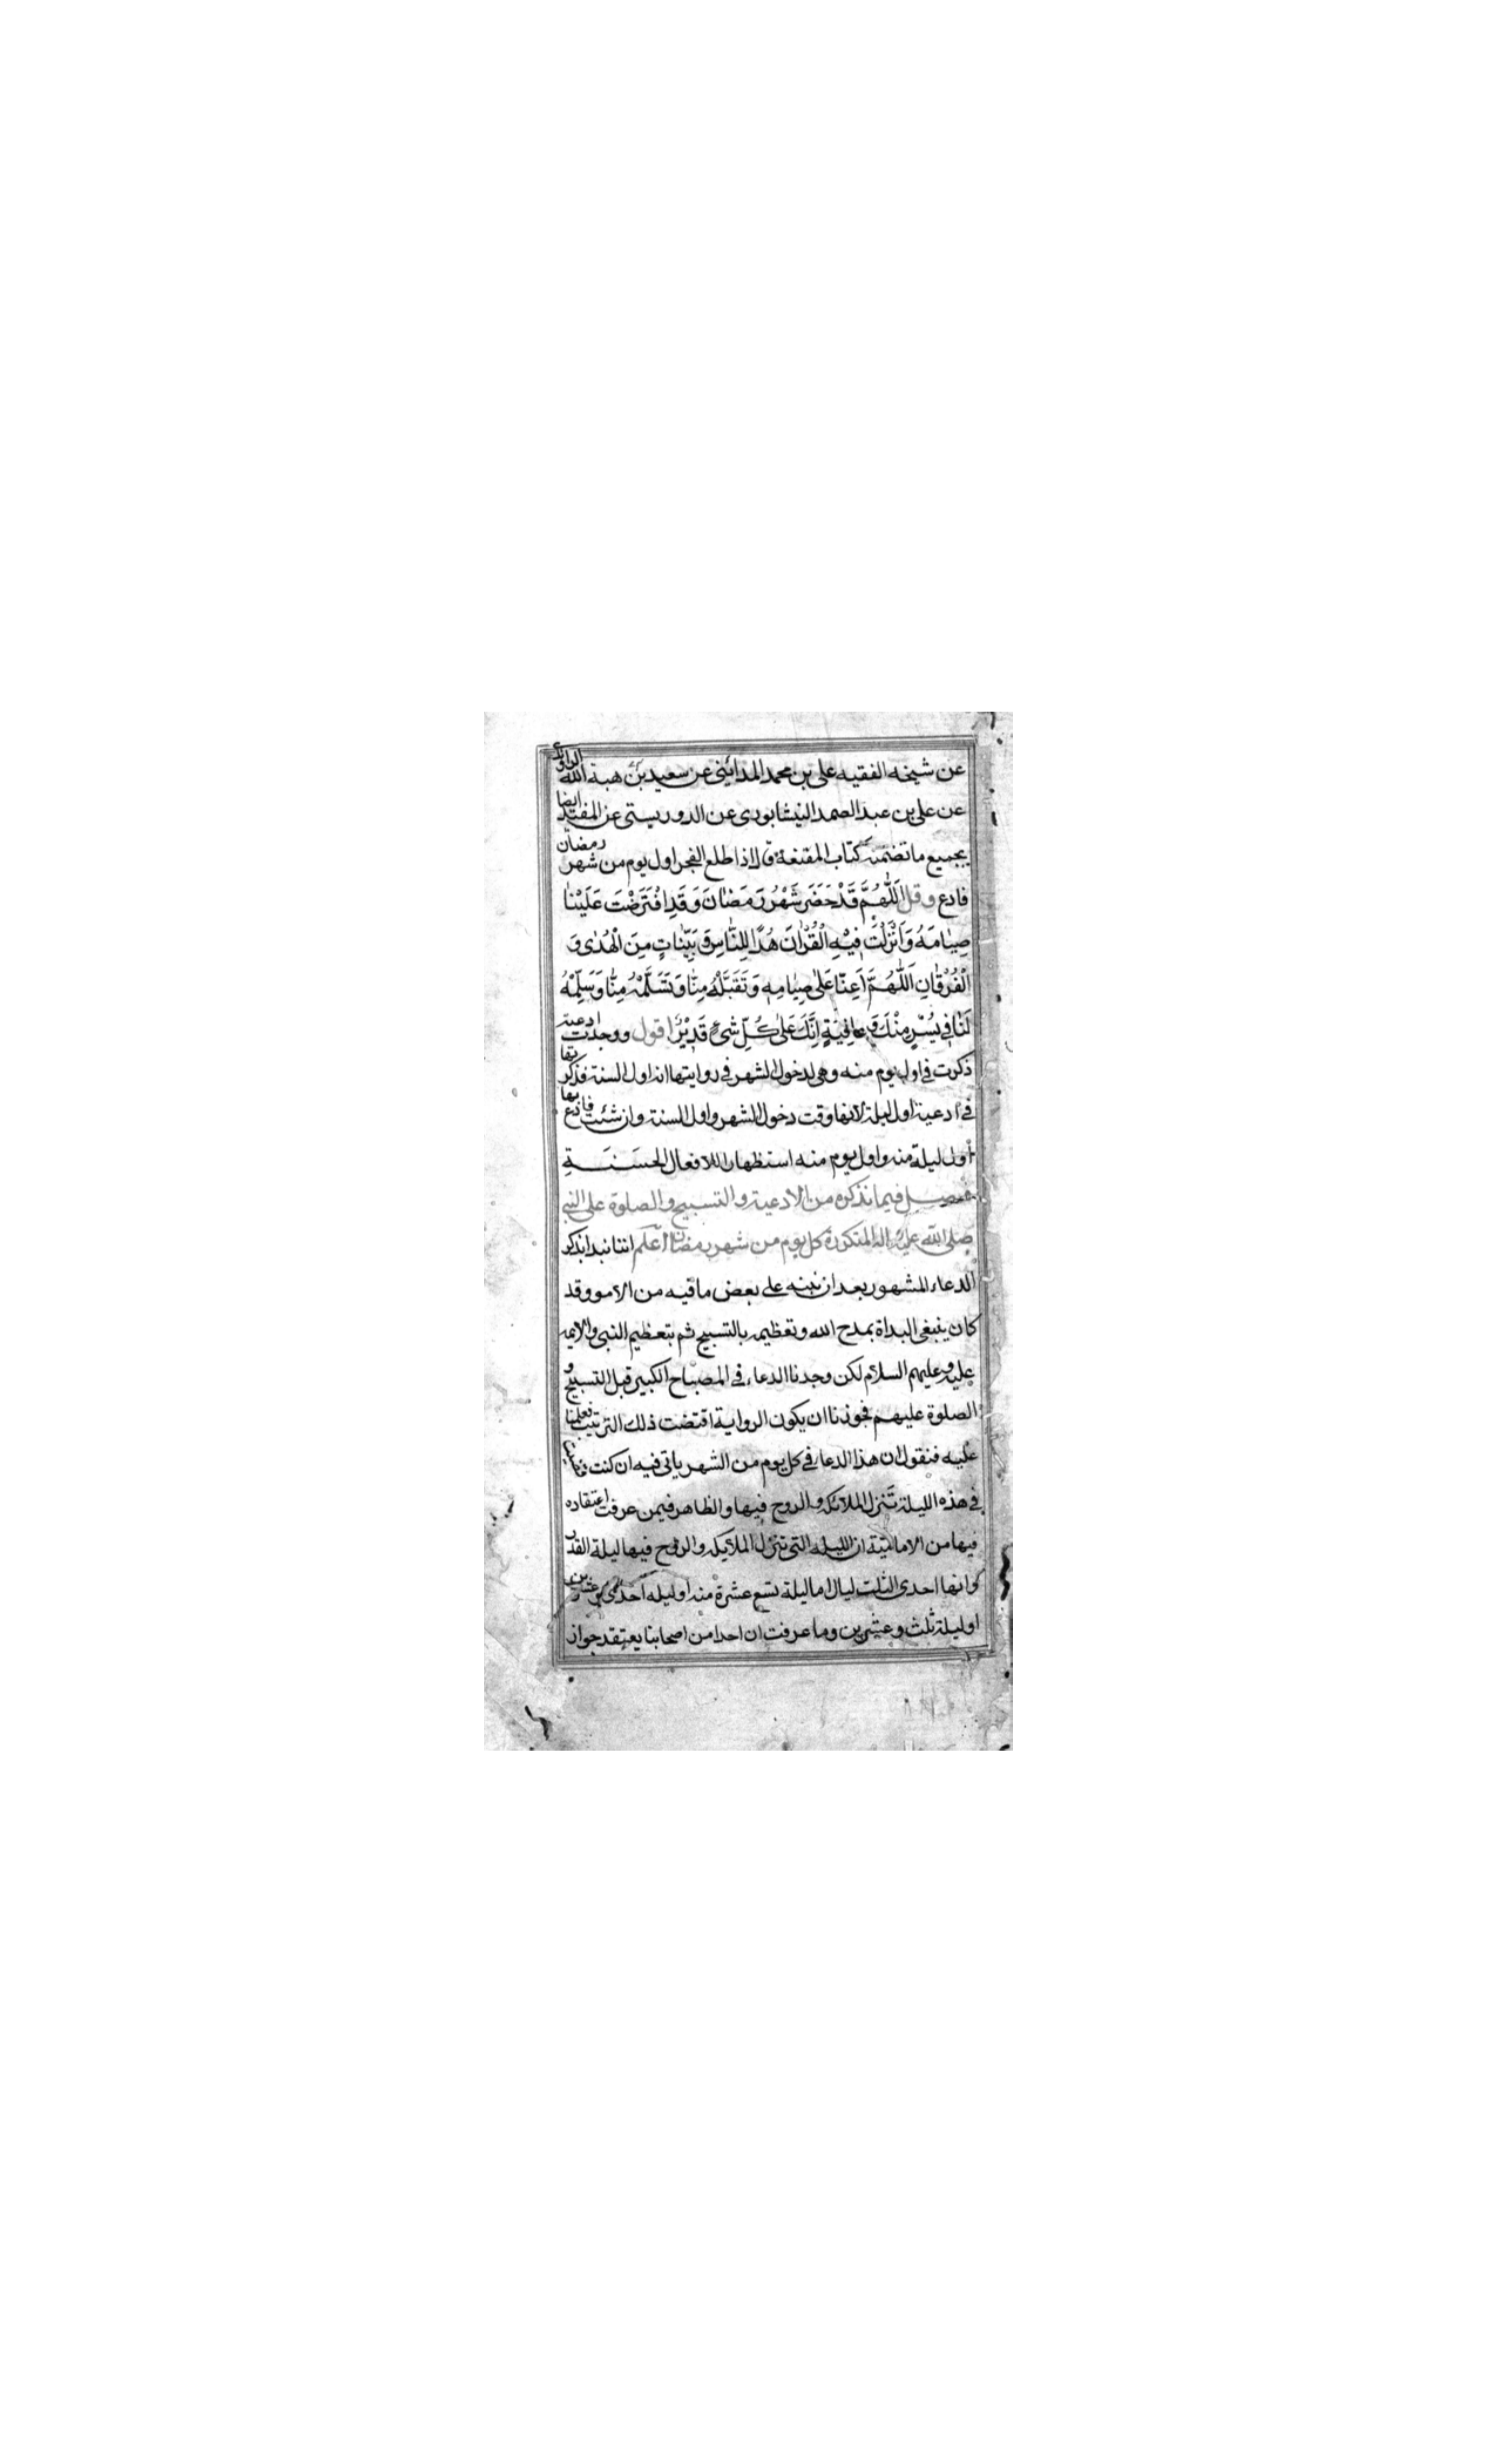 عن شيخه الفقيه على بن محمد المدائنى عن سعيد بن هبة الله الراوندى
عن على بن عبد الصمد النيشابورى عن الدوريستى عن المفيد ايضا
بجميع ما تضمنه كتاب المقنعة قال اذا طلع الفجر اول يوم من شهر رمضان
فادع وقل اَللّٰهُمَّ قَدْ حَضَرَ شَهْرُ رَمَضٰانَ وَقَدِ افْتَرَضْتَ عَلَيْنٰا
صِيٰامَهُ وَاَنْزَلْتَ فِيْهِ الْقُرْاٰنَ هُدًا لِلنّٰاسِ وَبَيِّنٰاتٍ مِنَ الْهُدٰى وَ
الْفُرْقٰانِ اَللّٰهُمَّ اَعِنّٰا عَلٰى صِيٰامِهِ وَتَقَبَّلْهُ مِنّٰا وَتَسَلَّمْهُ مِنّٰا وَسَلِّمْهُ
لَنٰا فِى يُسْرٍ مِنْكَ وَعٰافِيَةٍ اِنَّكَ عَلٰى كُلِّ شَىْءٍ قَدِيْرٌ اقول ووجدت ادعية
ذكرت فى اول يوم منه وهى لدخول الشهر فى روايتها انه اول السنة فذكرتها
فى ادعية اول ليلة لانها وقت دخول الشهر واول السنة وان شئت فادع بها
اول ليلة منه واول يوم منه استظهارا للافعال الحَسَنَةِ
فصل فيما نذكره من الادعية والتسبيح والصلوة على النبى
صلى الله عليه واله المتكررة كل يوم من شهر رمضان اعلم اننا نبدا بذكر
الدعاء المشهور بعد ان ننبه على بعض ما فيه من الامور وقد
كان ينبغى البداة بمدح الله وتعظيمه بالتسبيح ثم بتعظيم النبى والايمه
عليه وعليهم السلام لكن وجدنا الدعاء فى المصباح الكبير قبل التسبيح و
الصلوة عليهم فجوزنا ان يكون الرواية اقتضت ذلك الترتيب فعملنا
عليه فنقول ان هذا الدعا فى كل يوم من الشهر ياتى فيه ان كنت قضيت
فى هذه الليلة تَنزل الملائكه والروح فيها والظاهر فيمن عرفت اعتقاده
فيها من الاماميّة ان الليله التى تنزل الملايكه والروح فيها ليلة القدر
وانها احدى الثلث ليال اما ليلة تسع عشرة منه او ليله احدى وعشرين
او ليلة ثلث وعشرين وما عرفت ان احدا من اصحابنا يعتقد جواز